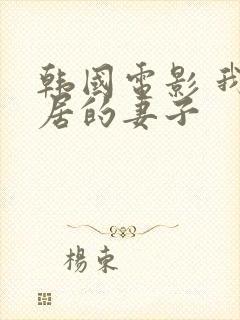 韩國電影 我
居的妻子
楊束